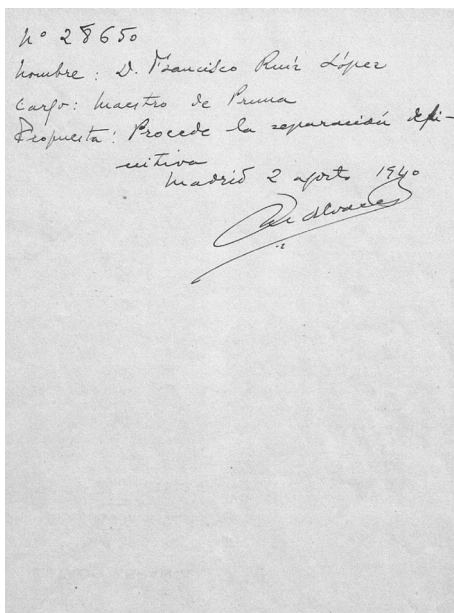 Nº 28650
Nombre: D. Francisco Ruiz López
Cargo: Maestro de Pruna
Propuesta: Procede la separación defi-
nitiva
Madrid 2 agosto 1940
Alvarez